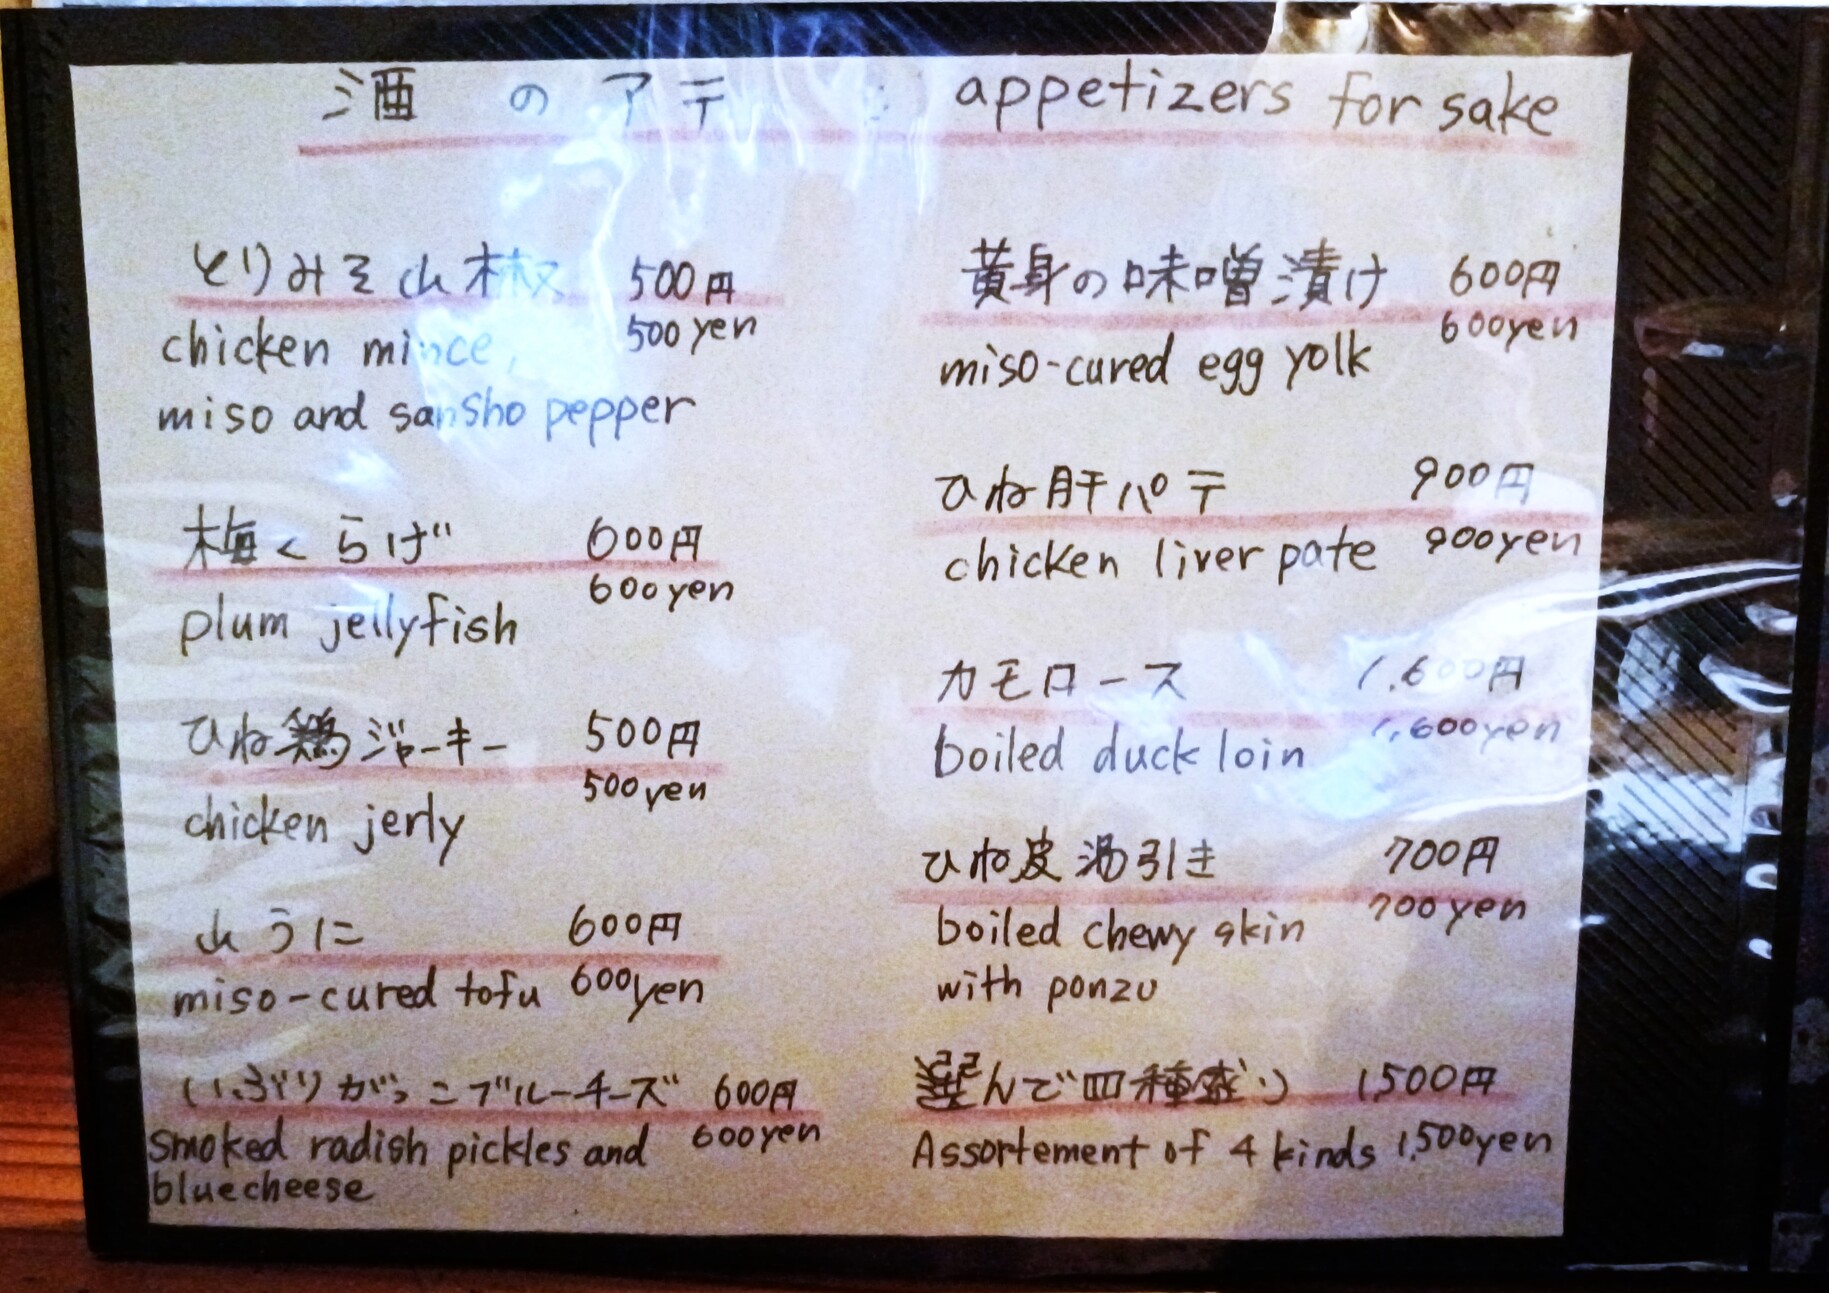 酒のアテ : appetizers for sake
とりみそ山椒 500円
500yen
chicken mince,
miso and sansho pepper
梅くらげ 600円
600yen
plum jellyfish
ひね鶏ジャーキー 500円
500yen
chicken jerly
山うに 600円
miso-cured tofu 600yen
いぶりがっこブルーチーズ 600円
smoked radish pickles and 600yen
bluecheese
黄身の味噌漬け 600円
600yen
miso-cured egg yolk
ひね肝パテ 900円
chicken liver pate 900yen
カモロース 1,600円
boiled duck loin 1,600yen
ひね皮湯引き 700円
boiled chewy skin 700yen
with ponzu
選んで四種盛り 1,500円
Assortement of 4 kinds 1,500yen